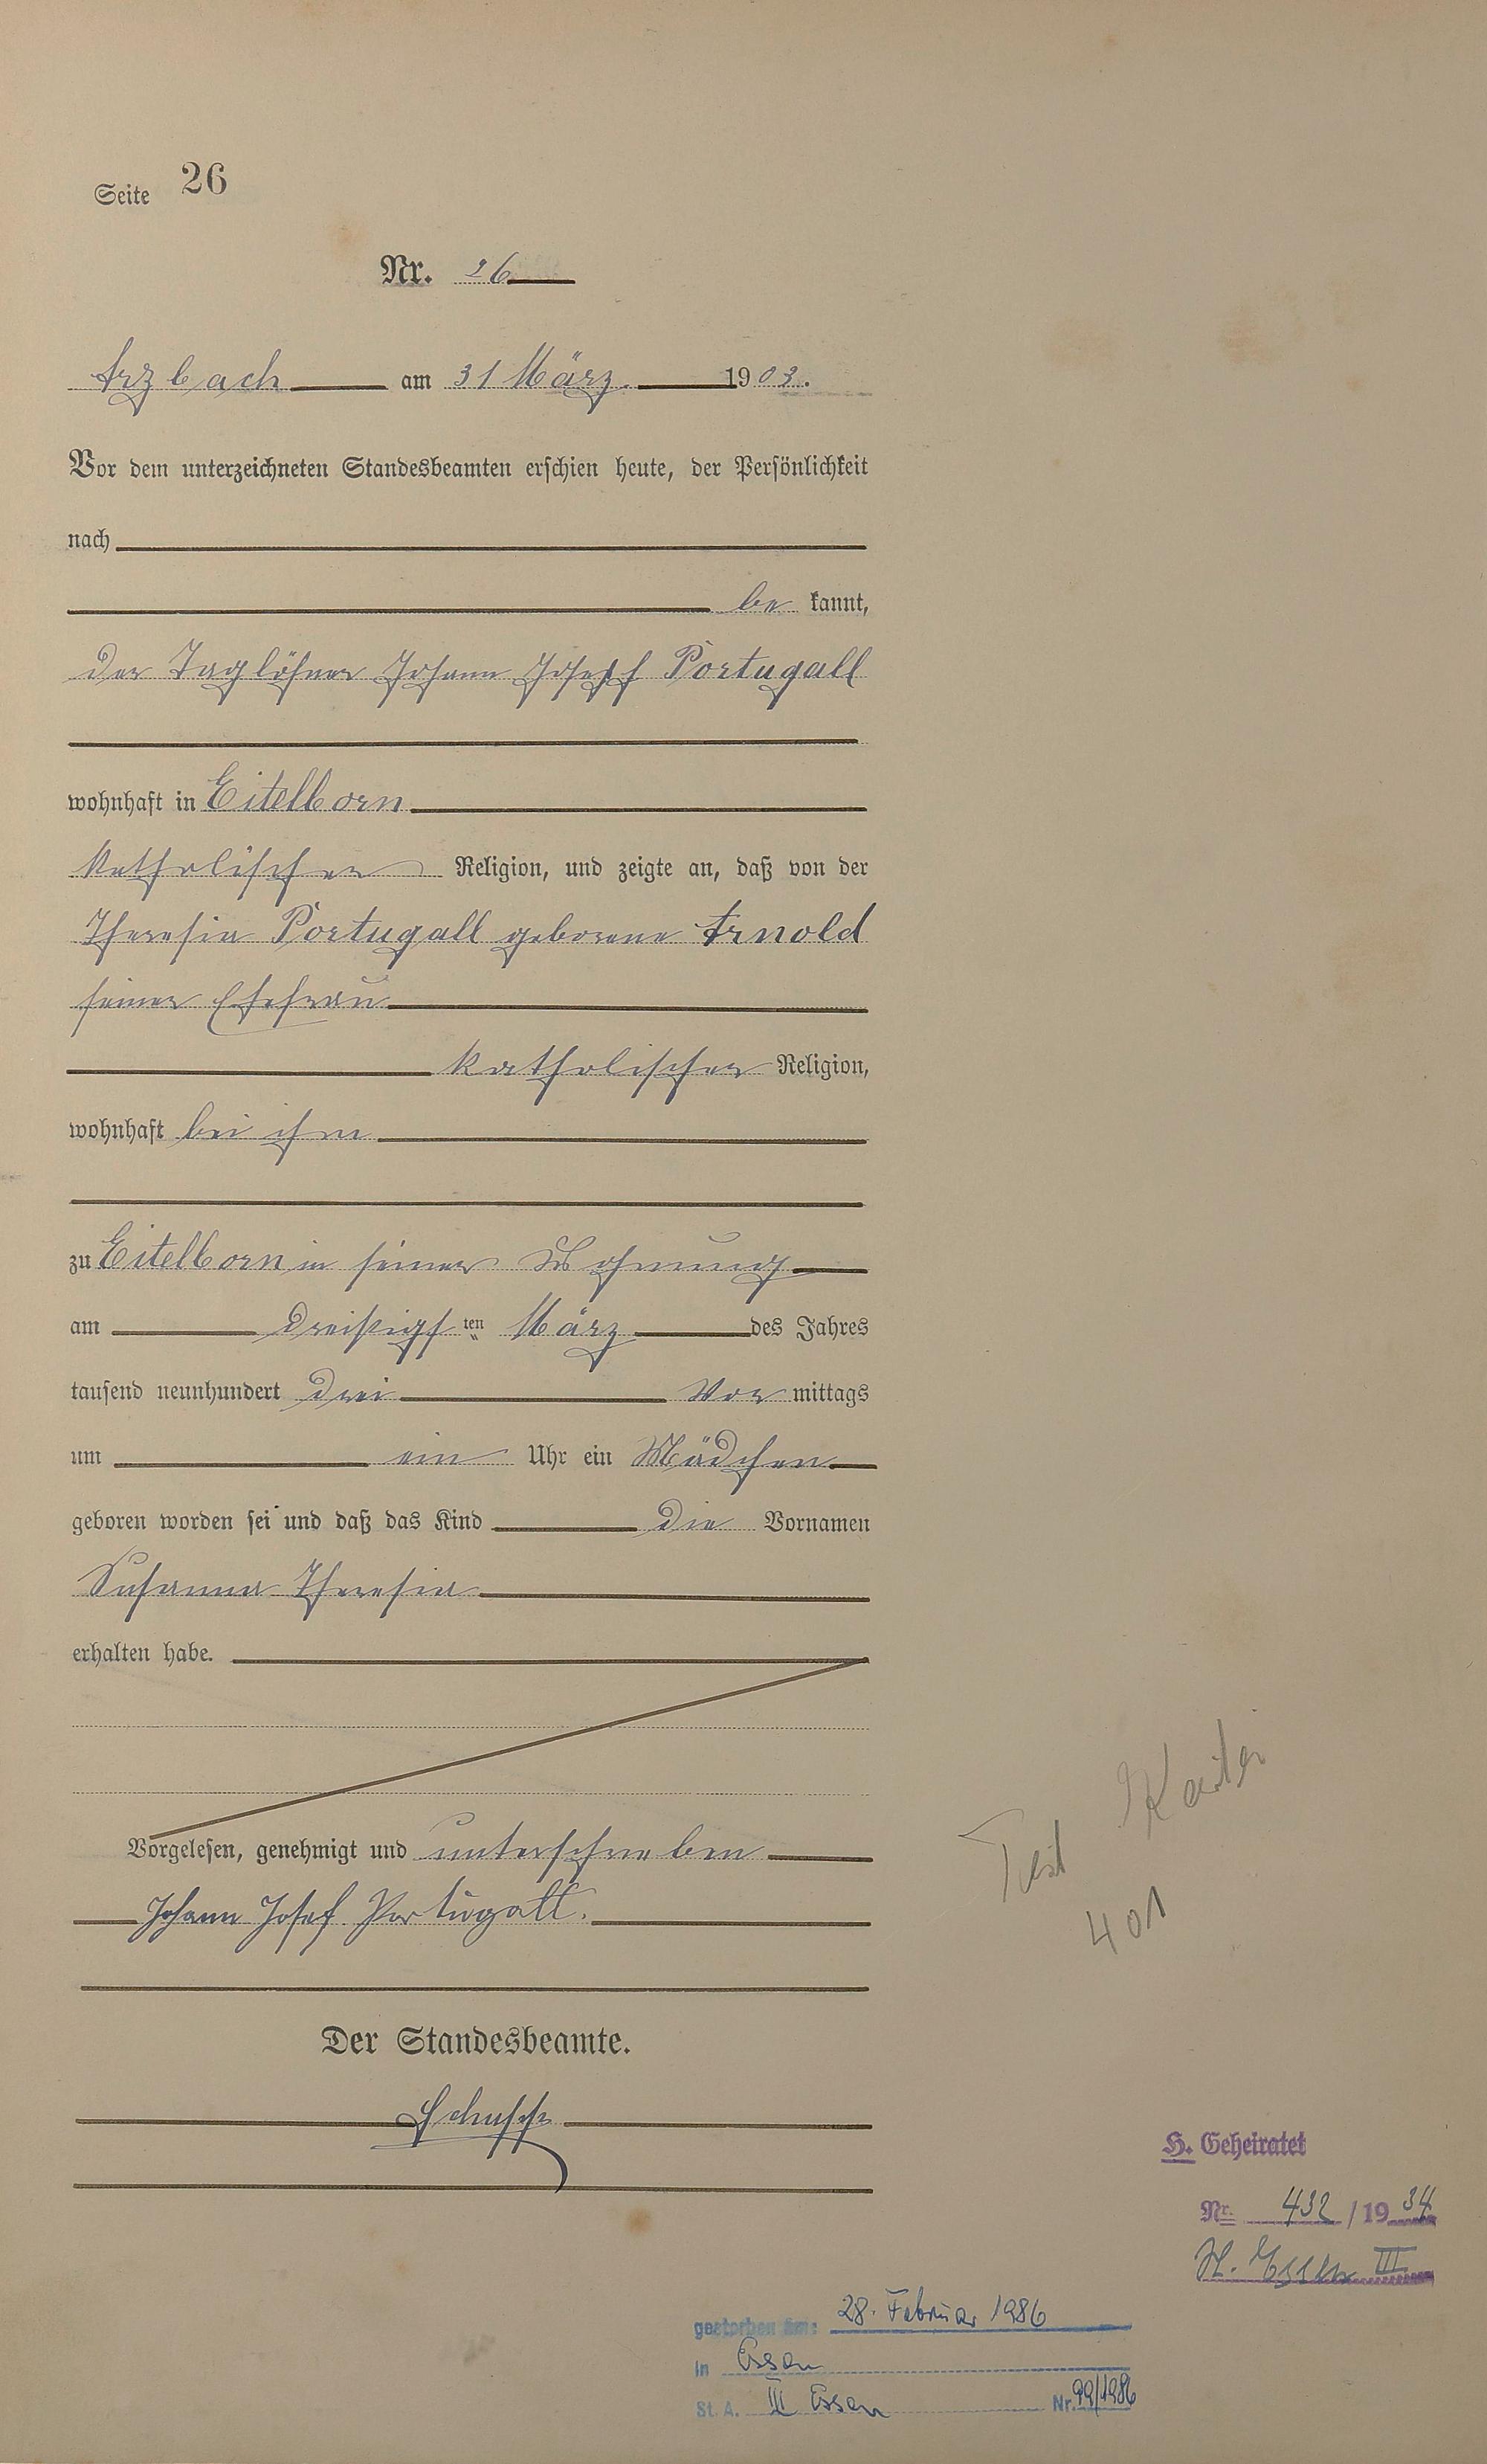 Seite 26
Nr. 26
Arzbach am 31 März 1903.
Vor dem unterzeichneten Standesbeamten erschien heute, der Persönlichkeit
nach
be kannt,
der Taglöhner Johann Josef Portugall
wohnhaft in Eitelborn
katholischer Religion, und zeigte an, daß von der
Theresia Portugall geborene Arnold
seiner Ehefrau
katholischer Religion,
wohnhaft bei ihm
zu Eitelborn in seiner Wohnung
am dreißigsten März des Jahres
tausend neunhundert drei Vor mittags
um ein Uhr ein Mädchen
geboren worden sei und daß das Kind die Vornamen
Susanna Theresia
erhalten habe.
Vorgelesen, genehmigt und unterschrieben
Johann Josef Portugall.
Der Standesbeamte.
Schupp
Test
401
H. Geheiratet
Nr. 432 / 1934
St. Essen III
gestorben am: 28. Februar 1986
in Essen
St. A. III Essen Nr. 99/1986